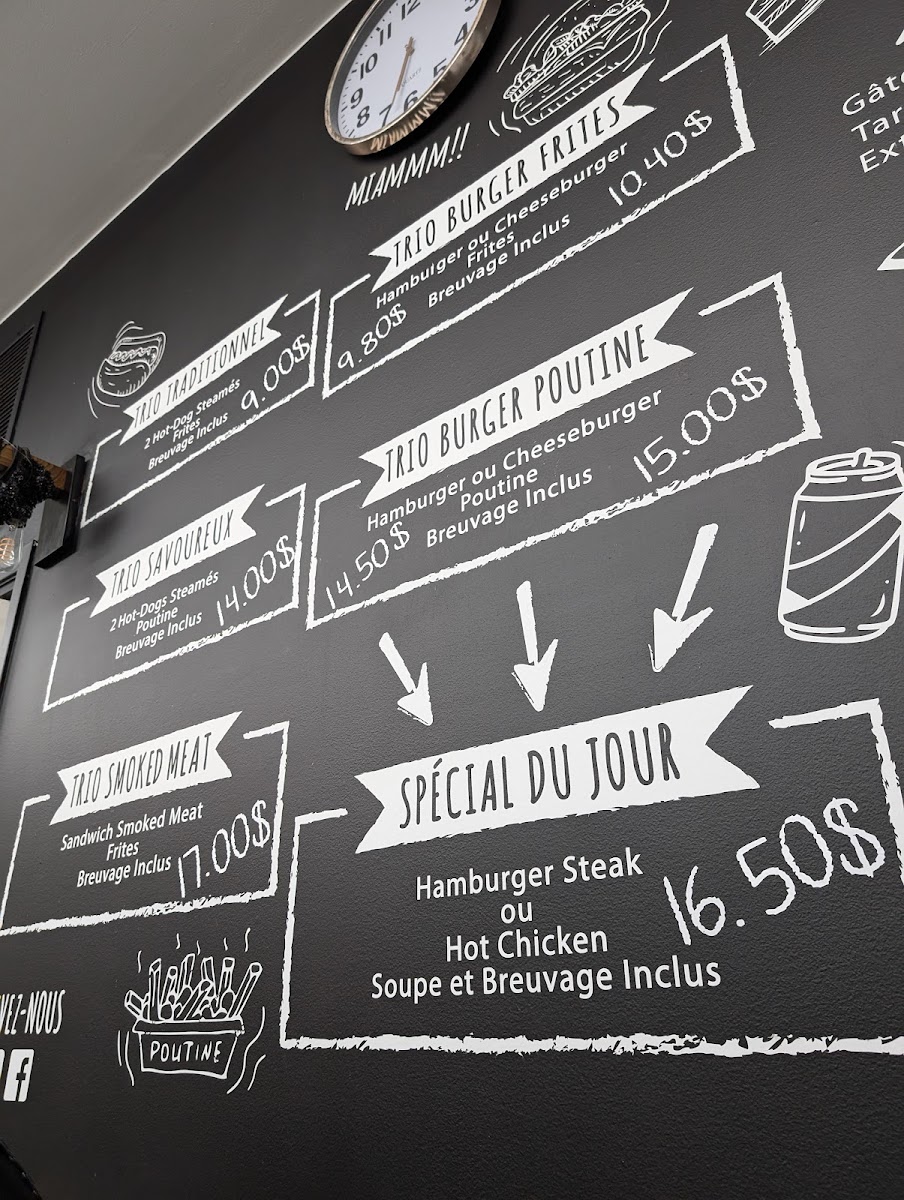 12
11
10
9
8
7
6
5
4
3
MIAMMM!!
TRIO BURGER FRITES
Hamburger ou Cheeseburger
Frites
Breuvage Inclus
9.80$
10.40$
TRIO TRADITIONNEL
2 Hot-Dog Steamés
Frites
Breuvage Inclus
9.00$
TRIO BURGER POUTINE
Hamburger ou Cheeseburger
Poutine
Breuvage Inclus
14.50$
15.00$
TRIO SAVOUREUX
2 Hot-Dogs Steamés
Poutine
Breuvage Inclus
14.00$
TRIO SMOKED MEAT
Sandwich Smoked Meat
Frites
Breuvage Inclus
17.00$
SPÉCIAL DU JOUR
Hamburger Steak
ou
Hot Chicken
Soupe et Breuvage Inclus
16.50$
VEZ-NOUS
f
POUTINE
Gât
Tar
Ext